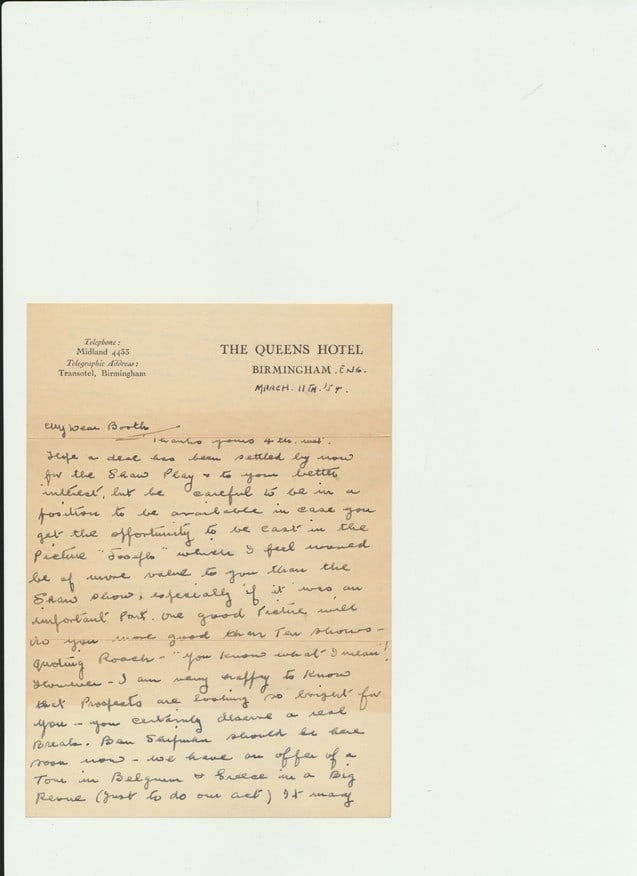 Telephone:
Midland 4433
Telegraphic Address:
Transotel, Birmingham
THE QUEENS HOTEL
BIRMINGHAM. ENG.
MARCH. 11TH. '54.
My Dear Booth
Thanks yours 4th. inst.
Hope a deal has been settled by now
for the Shaw Play & to your better
interest, but be careful to be in a
position to be available in case you
get the opportunity to be cast in the
Picture "Joseph" which I feel would
be of more value to you than the
Shaw show, especially if it was an
important Part. One good Picture will
do you more good than Ten shows –
quoting Roach – "you know what I mean"!
However – I am very happy to know
that Prospects are looking so bright for
you – you certainly deserve a real
Break. Ben Shipman should be here
soon now – we have an offer of a
Tour in Belgium & Greece in a Big
Revue (Just to do our act) It may